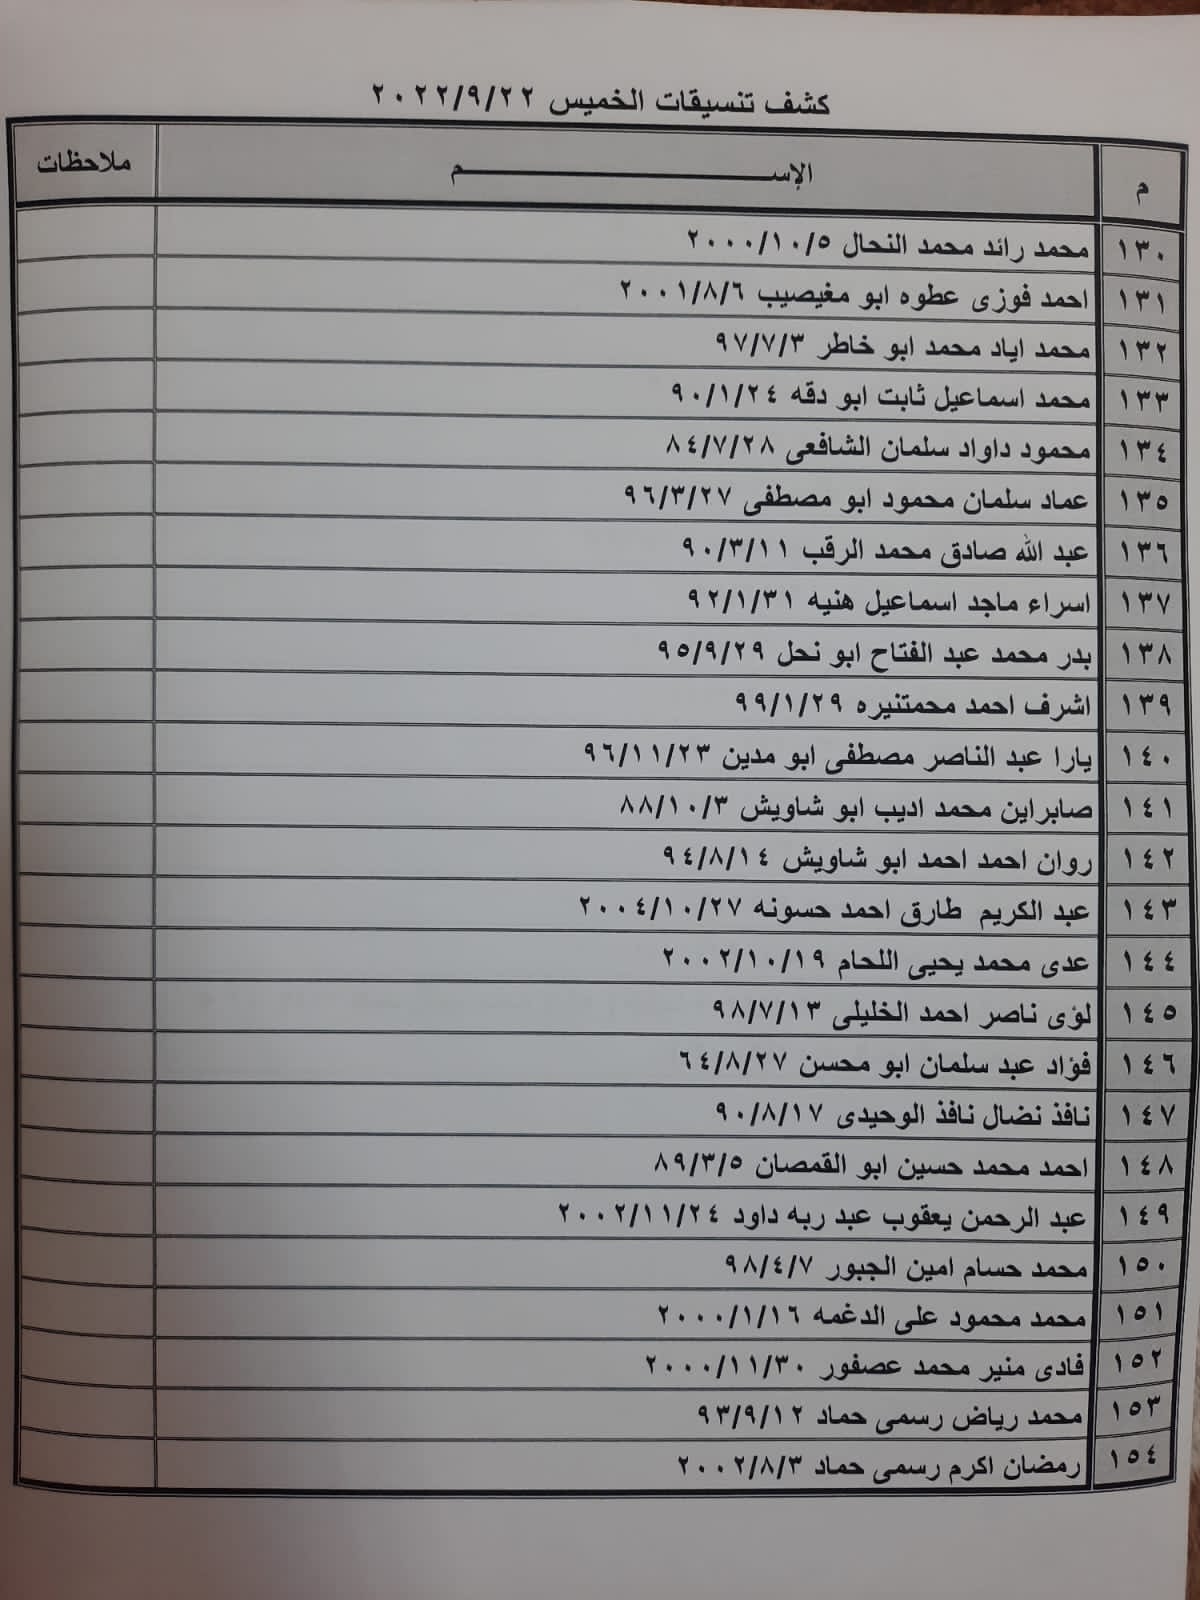 كشف تنسيقات الخميس ٢٠٢٢/٩/٢٢
م الإســـــــــــــــــــــــم ملاحظات
١٣٠ محمد رائد محمد النحال ٢٠٠٠/١٠/٥
١٣١ احمد فوزى عطوه ابو مغيصيب ٢٠٠١/٨/٦
١٣٢ محمد اياد محمد ابو خاطر ٩٧/٧/٣
١٣٣ محمد اسماعيل ثابت ابو دقه ٩٠/١/٢٤
١٣٤ محمود داواد سلمان الشافعى ٨٤/٧/٢٨
١٣٥ عماد سلمان محمود ابو مصطفى ٩٦/٣/٢٧
١٣٦ عبد الله صادق محمد الرقب ٩٠/٣/١١
١٣٧ اسراء ماجد اسماعيل هنيه ٩٢/١/٣١
١٣٨ بدر محمد عبد الفتاح ابو نحل ٩٥/٩/٢٩
١٣٩ اشرف احمد محمتنيره ٩٩/١/٢٩
١٤٠ يارا عبد الناصر مصطفى ابو مدين ٩٦/١١/٢٣
١٤١ صابراين محمد اديب ابو شاويش ٨٨/١٠/٣
١٤٢ روان احمد احمد ابو شاويش ٩٤/٨/١٤
١٤٣ عبد الكريم طارق احمد حسونه ٢٠٠٤/١٠/٢٧
١٤٤ عدى محمد يحيى اللحام ٢٠٠٢/١٠/١٩
١٤٥ لؤى ناصر احمد الخليلى ٩٨/٧/١٣
١٤٦ فؤاد عبد سلمان ابو محسن ٦٤/٨/٢٧
١٤٧ نافذ نضال نافذ الوحيدى ٩٠/٨/١٧
١٤٨ احمد محمد حسين ابو القمصان ٨٩/٣/٥
١٤٩ عبد الرحمن يعقوب عبد ربه داود ٢٠٠٢/١١/٢٤
١٥٠ محمد حسام امين الجبور ٩٨/٤/٧
١٥١ محمد محمود على الدغمه ٢٠٠٠/١/١٦
١٥٢ فادى منير محمد عصفور ٢٠٠٠/١١/٣٠
١٥٣ محمد رياض رسمى حماد ٩٣/٩/١٢
١٥٤ رمضان اكرم رسمى حماد ٢٠٠٢/٨/٣